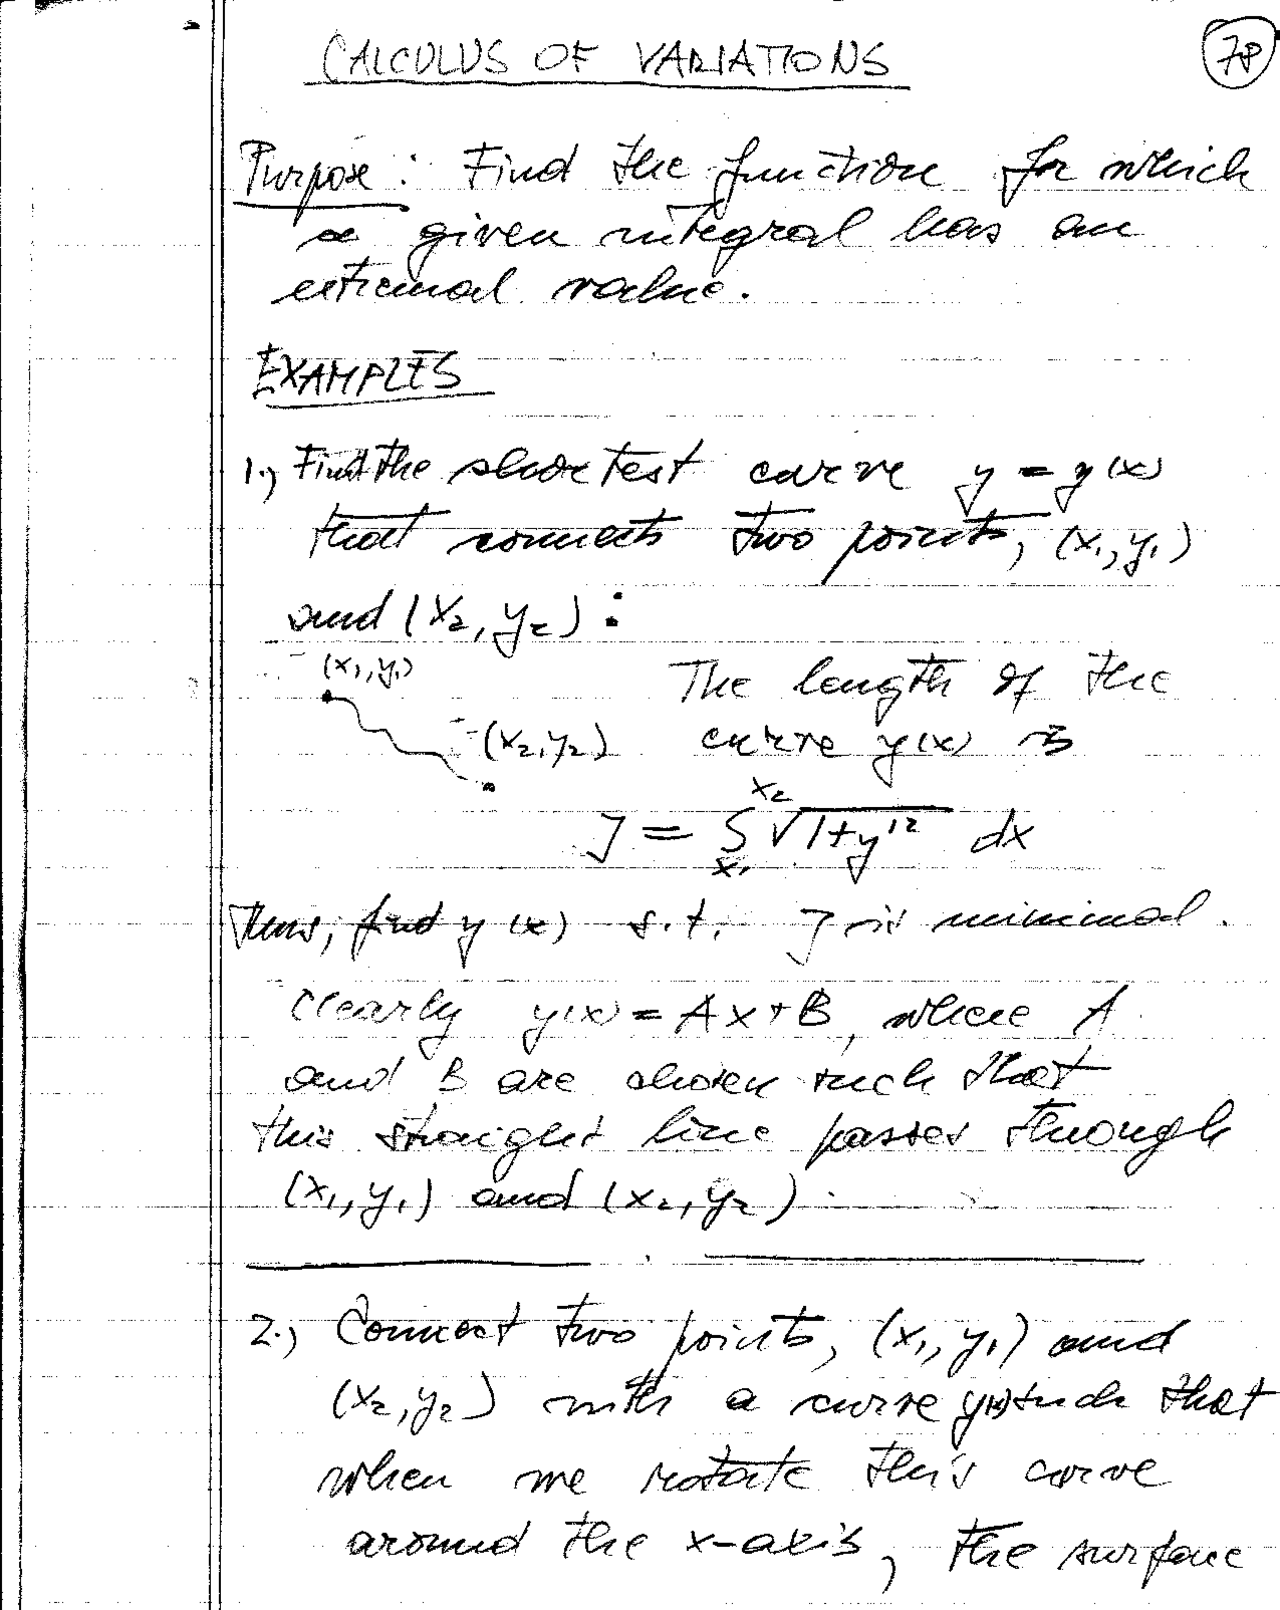 CALCULUS OF VARIATIONS
78
Purpose: Find the function for which
a given integral has an
extremal value.
EXAMPLES
1.) Find the shortest curve y = y(x)
that connects two points, (x₁, y₁)
and (x₂, y₂):
(x₁, y₁)
(x₂, y₂)
The length of the
curve y(x) is
J = ∫_{x₁}^{x₂} √(1+y'²) dx
Thus, find y(x) s.t. J is minimal.
Clearly y(x) = Ax+B, where A
and B are chosen such that
this straight line passes through
(x₁, y₁) and (x₂, y₂).
2.) Connect two points, (x₁, y₁) and
(x₂, y₂) with a curve y(x) such that
when we rotate this curve
around the x-axis, the surface